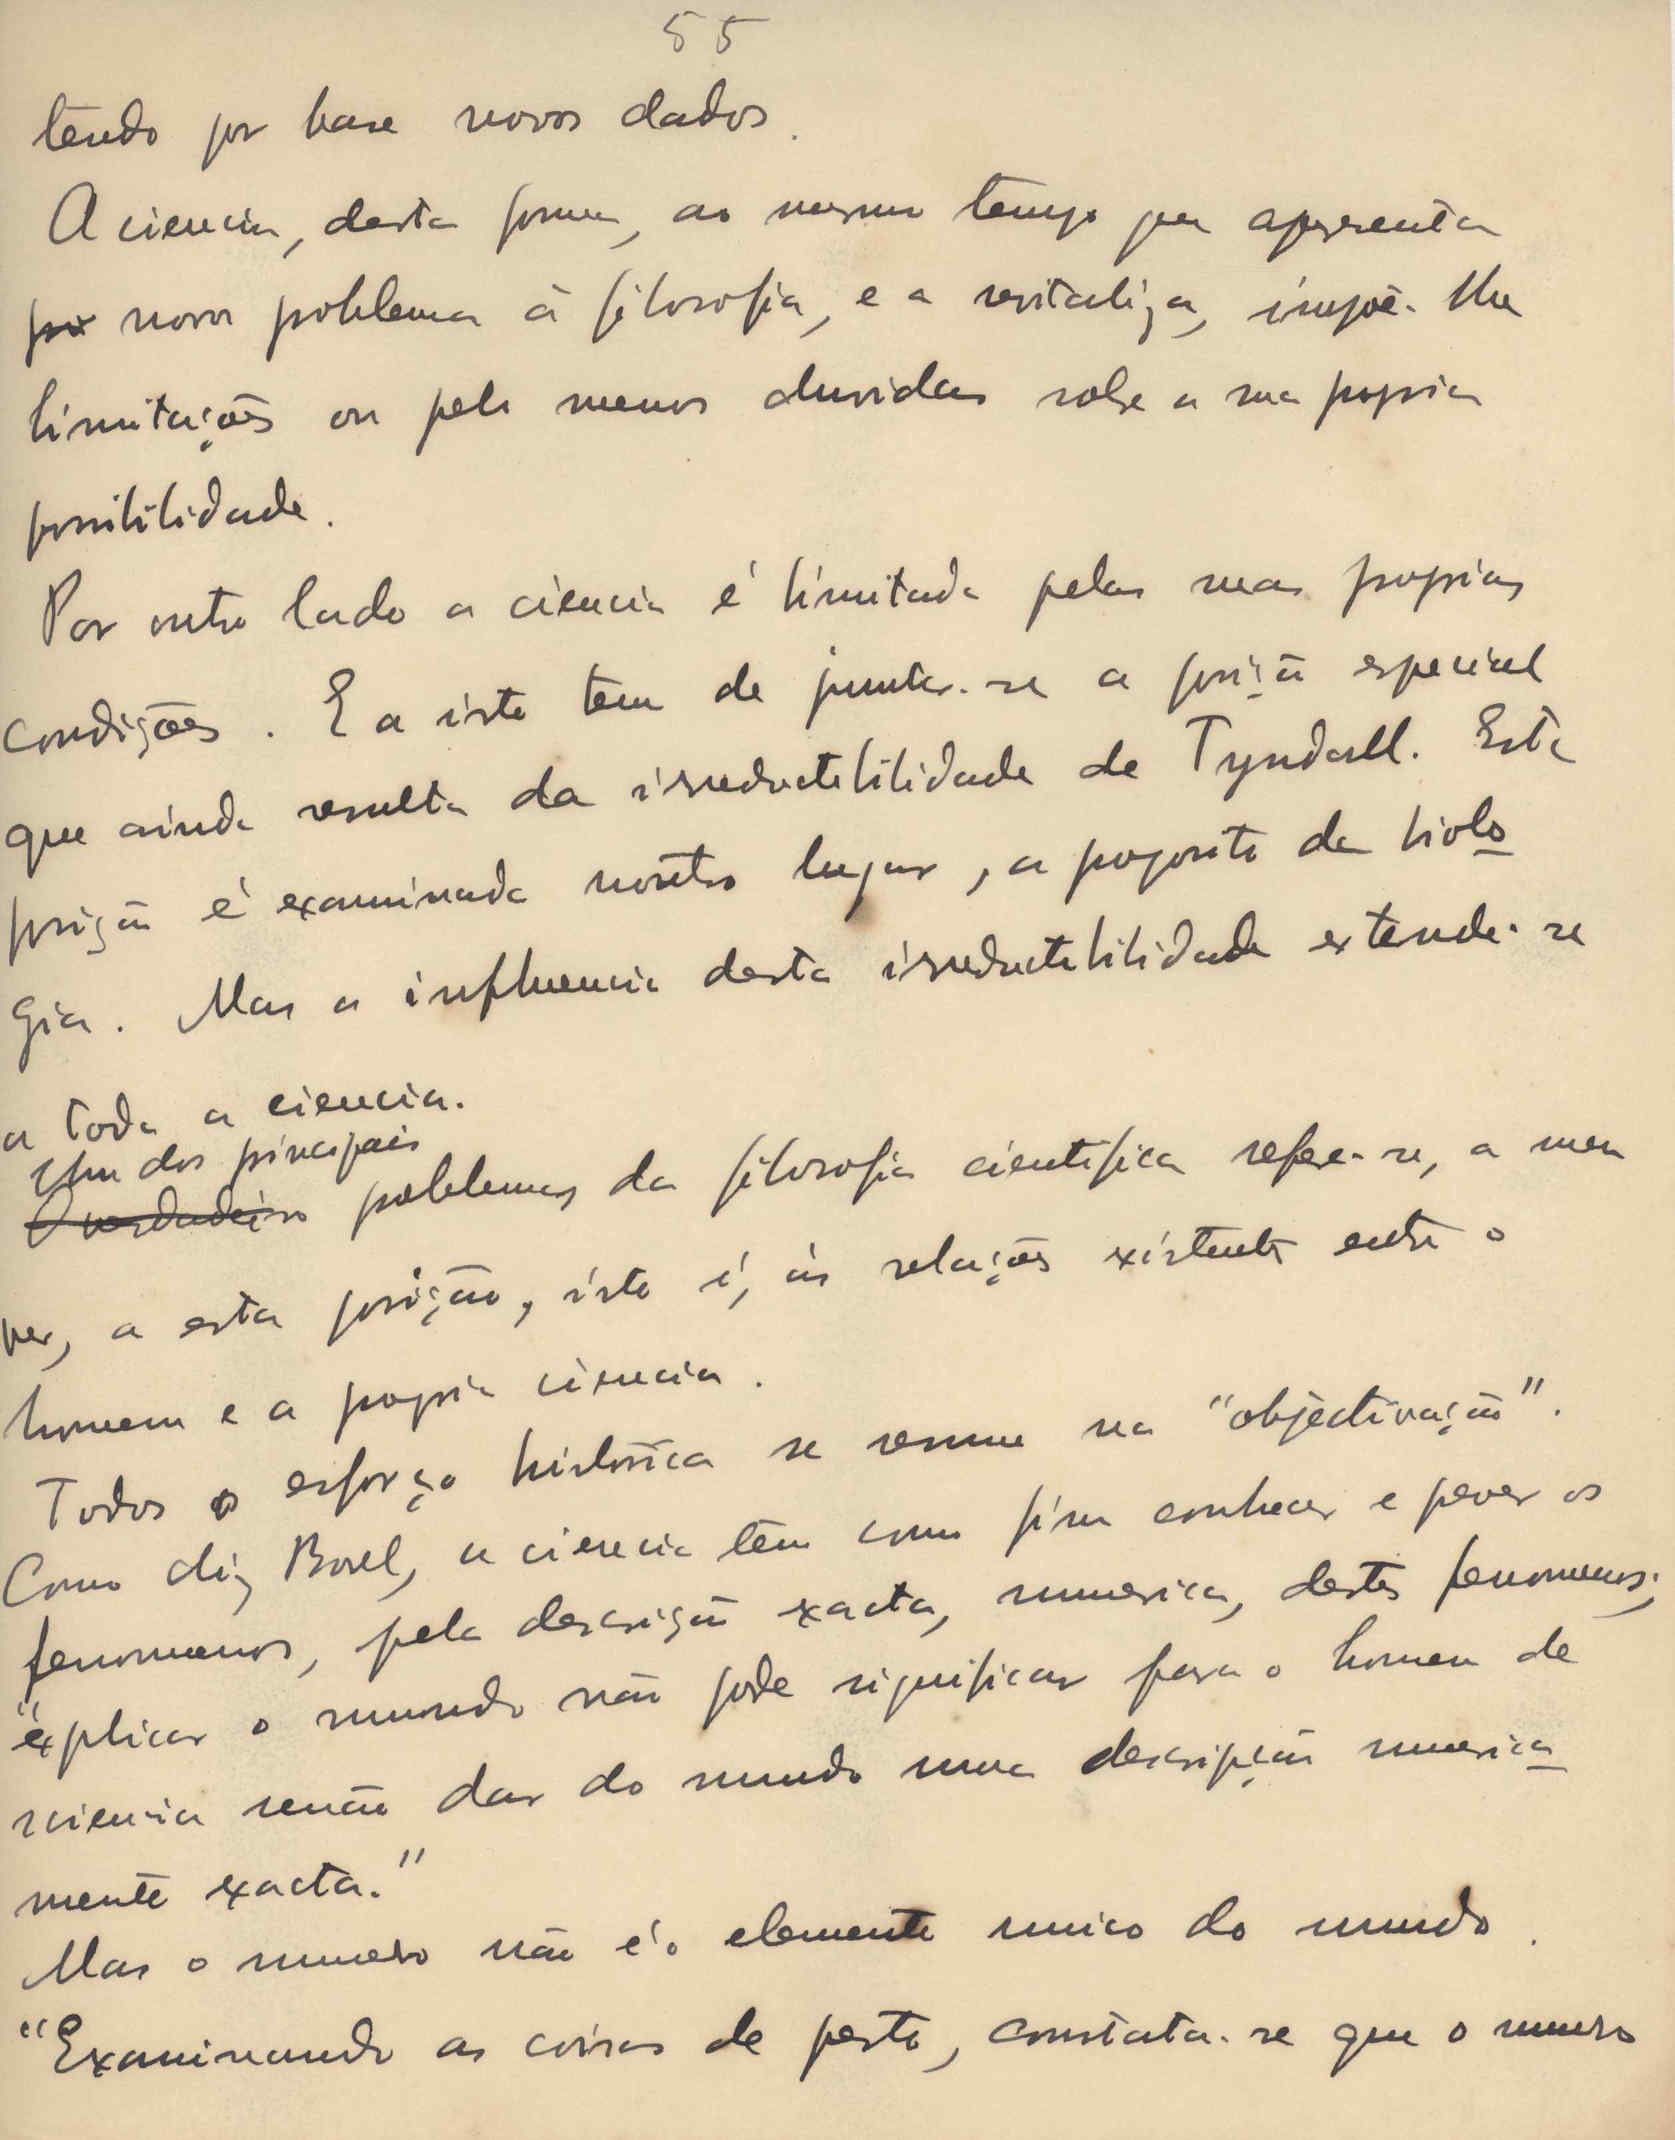 55
tendo por base novos dados.
A ciencia, desta forma, ao mesmo tempo que apresenta
novos problemas á filosofia, e a revitaliza, impõe-lhe
limitações ou pelo menos duvidas sobre a sua propria
possibilidade.
Por outro lado a ciencia é limitada pelas suas proprias
condições. E a isto tem de juntar-se a posição especial
que ainda resulta da irreductibilidade de Tyndall. Esta
posição é examinada noutro lugar, a proposito da biolo
gia. Mas a influencia desta irreductibilidade extende-se
a toda a ciencia.
Um dos principais
O verdadeiro problemas da filosofia cientifica refere-se, a meu
ver, a esta posição, isto é, ás relações existentes entre o
homem e a propria ciencia.
Todos o esforço historica se resume na "objectivação".
Como diz Borel, a ciencia tem como fim conhecer e prever os
fenomenos, pela descrição exacta, numerica, destes fenomenos;
"explicar o mundo não pode significar para o homem de
sciencia senão dar do mundo uma descripção numerica
mente exacta."
Mas o numero não é o elemento unico do mundo.
"Examinando as coisas de perto, constata-se que o numero